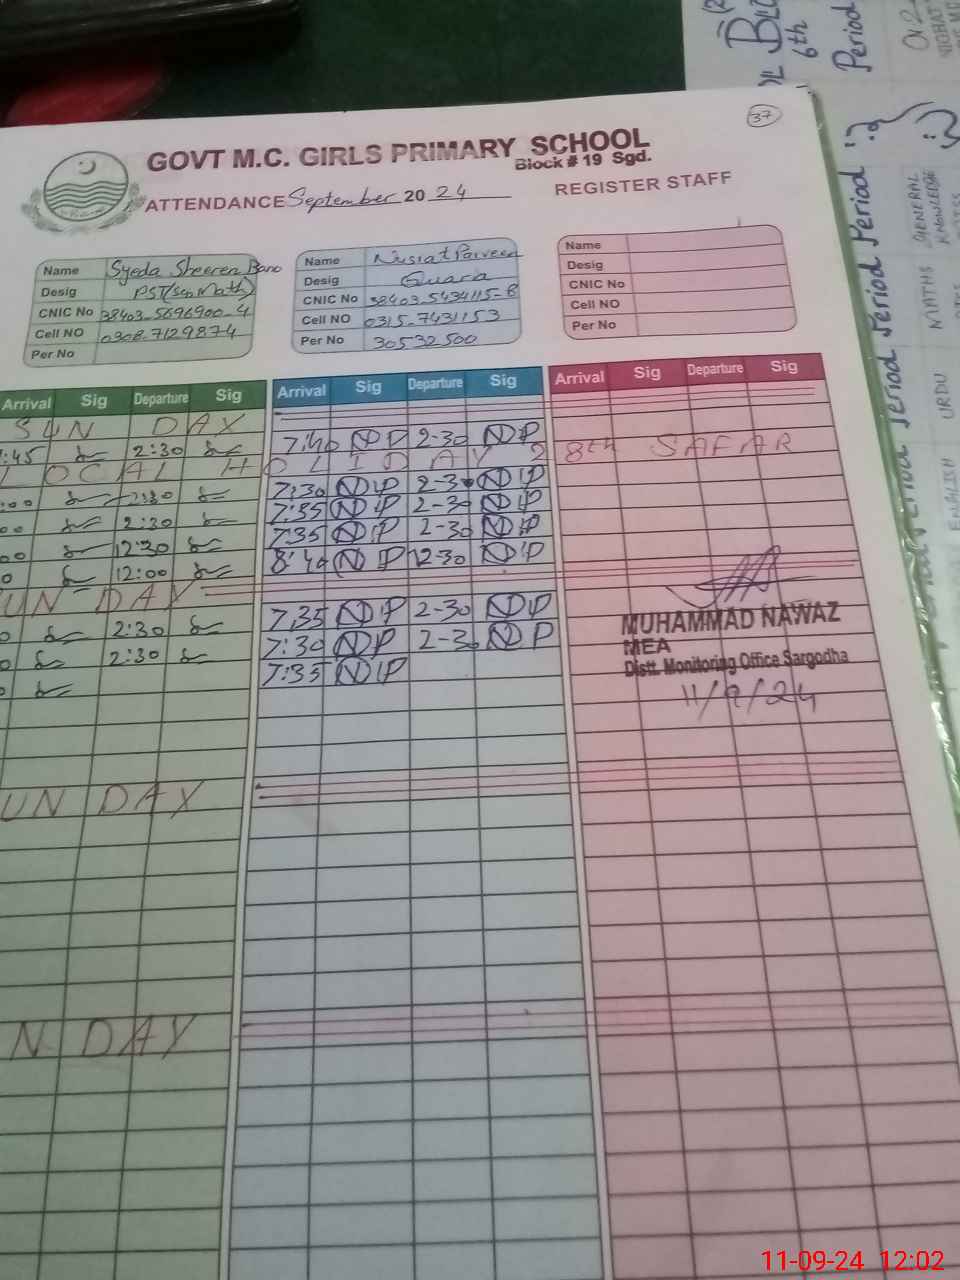 37
GOVT M.C. GIRLS PRIMARY SCHOOL
Block # 19 Sgd.
ATTENDANCE September 2024
REGISTER STAFF
Name Syeda Sheeren Bano
Desig PST (Sci Math)
CNIC No 38403-5696900-4
Cell NO 0308-7129874
Per No
Name Nusrat Parveen
Desig
CNIC No 38403-5434115-8
Cell NO 0315-7431153
Per No 30532500
Name
Desig
CNIC No
Cell NO
Per No
Arrival Sig Departure Sig Arrival Sig Departure Sig Arrival Sig Departure Sig
SUN DAY
:45 2:30 7:40 NP 2-30 NP
LOCAL HOLIDAY 8th SAFAR
:00 2:30 7:30 NP 2-30 NP
00 2:30 7:35 NP 2-30 NP
00 12:30 7:35 NP 2-30 NP
0 12:00 8:40 NP 12-30 NP
UN DAY
0 2:30 7:35 NP 2-30 NP
0 2:30 7:30 NP 2-30 NP
0 7:35 NP
MUHAMMAD NAWAZ
MEA
Distt. Monitoring Office Sargodha
11/9/24
UN DAY
N DAY
6th
Period
Period
Period
Period
GENERAL
KNOWLEDGE
MATHS
URDU
ENGLISH
11-09-24 12:02